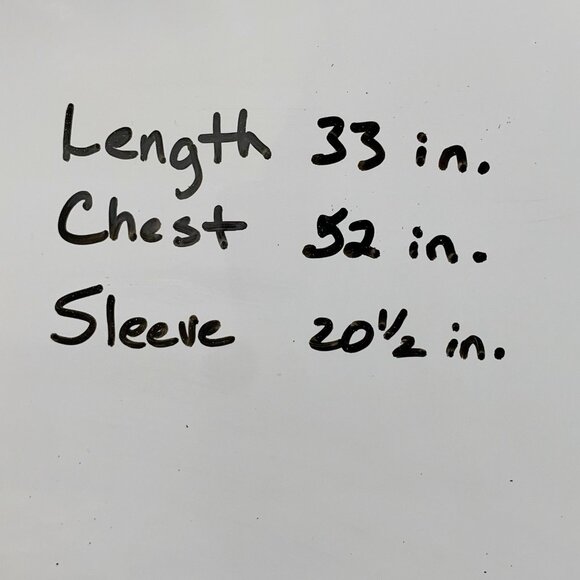 Length 33 in.
Chest 52 in.
Sleeve 20 1/2 in.